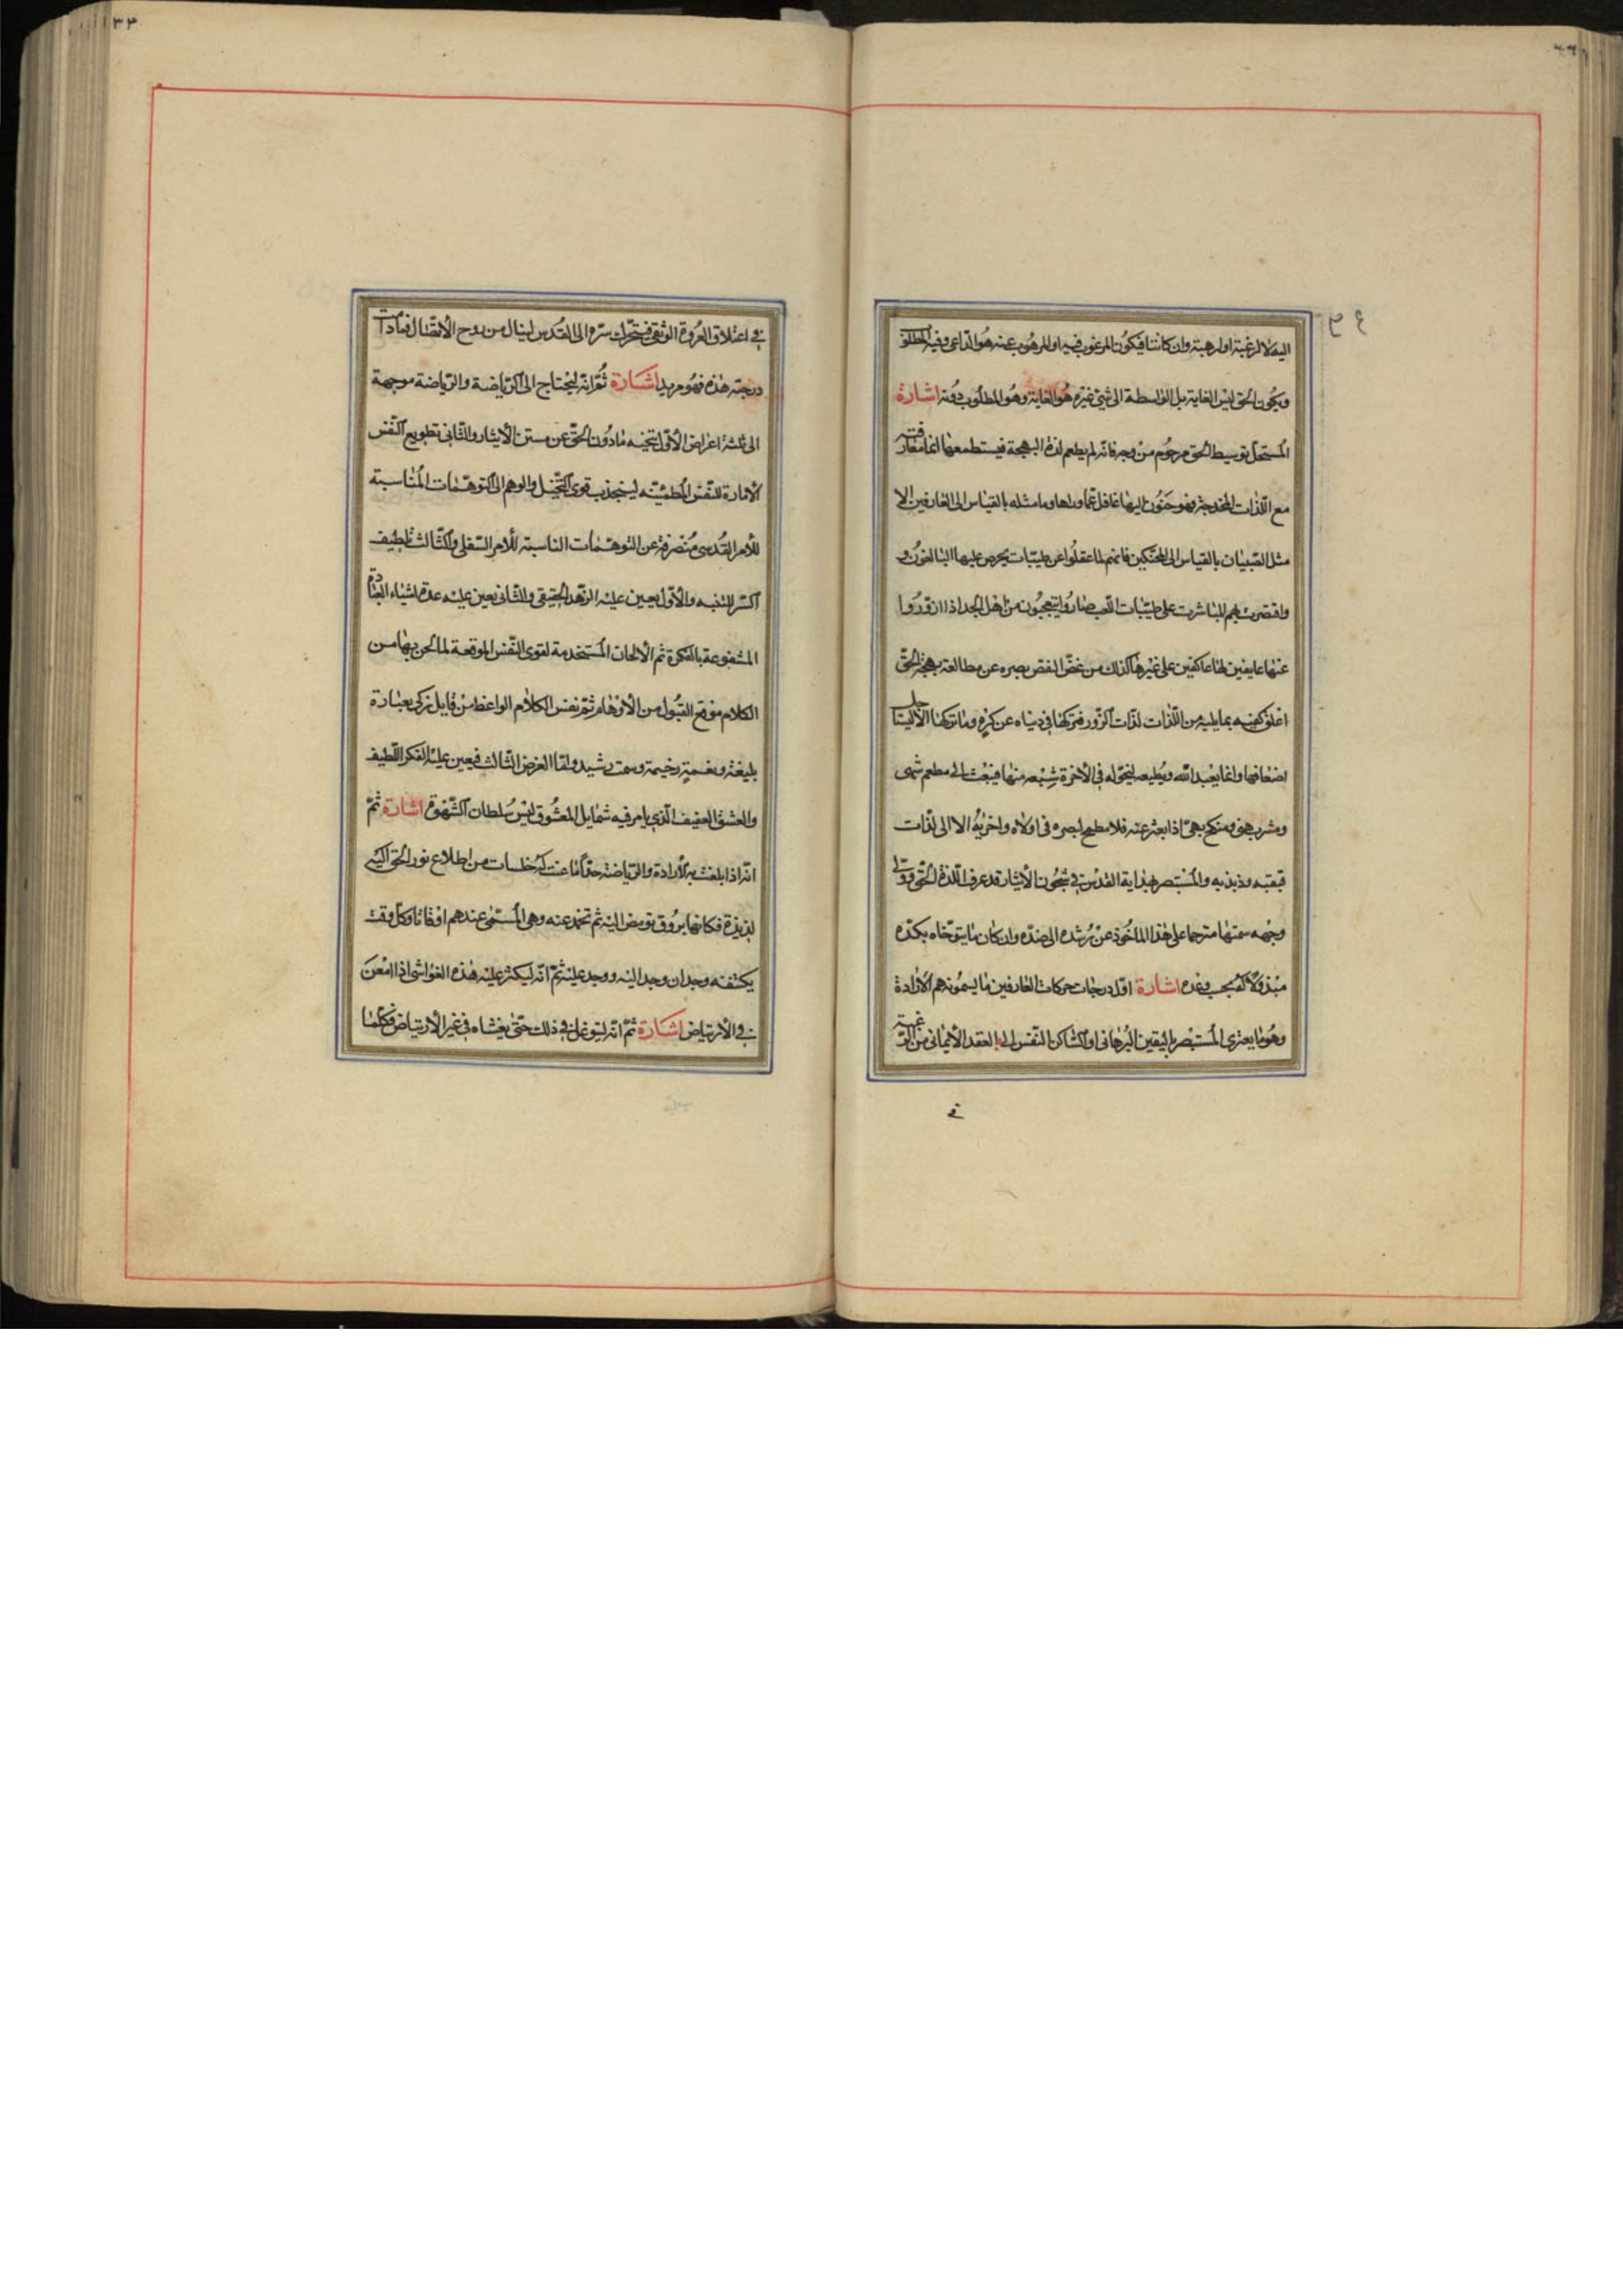 اليه لا لرغبة او لرهبة وان كانتا فيكون المرغوب فيه او المرهوب عنه هو الداعى وفيه المطلوب
ويكون الحق ليس الغاية بل الواسطة الى شئ غيره هو الغاية وهو المطلوب دونه اشارة
المستحل توسيط الحق مرحوم من وجه فانه لم يطعم لذة البهجة فيستطعمها انما معارفته
مع اللذات المخدجة فهو حنون اليها غافل عما وراها وما مثله بالقياس الى العارفين الا
مثل الصبيان بالقياس الى المحنكين فانهم لما عقلوا عن طيبات يحرص عليها البالغون و
واقتصرت بهم المباشرت على طيبات اللعب صاروا يتعجبون من اهل الجد اذا ازوروا
عنها عايفين لها عاكفين على غيرها كذلك من غض النقص بصره عن مطالعة بهجة الحق
اعلق كفيه بما يليه من اللذات لذات الزور فتركها في دنياه عن كره وما تركها الا ليستاجل
اضعافها وانما يعبد الله ويطيعه ليخوله في الاخرة شبعه منها فيبعث الى مطعم شهى
ومشرب هنى ومنكح بهى اذا بعثر عنه فلا مطمح لبصره فى اولاه واخريه الا الى لذات
قبقبه وذبذبه والمستبصر بهداية القدس في شجون الايثار قد عرف اللذة الحق وولى
وجهه سمتها مترحما على هذا الماخوذ عن رشده الى ضده وان كان ما يتوخاه بكده
مبذولا له بحسب وعده اشارة اول درجات حركات العارفين ما يسمونه هم الارادة
وهو ما يعترى المستبصر باليقين البرهانى او الساكن النفس الى العقد الايمانى من الرغبة
في
في اعتلاق العروة الوثقى فيتحرك سره الى القدس لينال من روح الاتصال فمادامت
درجته هذه فهو مريد اشارة ثم انه ليحتاج الى الرياضة والرياضة موجهة
الى ثلثة اغراض الاول تنحيه مادون الحق عن مستن الايثار والثانى تطويع النفس
الامارة للنفس المطمئنه لينجذب قوى التخيل والوهم الى التوهمات المناسبة
للامر القدسى منصرفة عن التوهمات الناسبة للامر السفلى والثالث تلطيف
السر للتنبه والاول يعين عليه الزهد الحقيقى والثانى يعين عليه عدة اشياء العبادة
المشفوعة بالفكرة ثم الالحان المستخدمة لقوى النفس الموقعة لما لحن بها من
الكلام موقع القبول من الاوهام ثم نفس الكلام الواعظ من قايل زكى بعبارة
بليغة ونغمة رخيمة وسمت رشيد واما الغرض الثالث فيعين عليه الفكر اللطيف
والعشق العفيف الذى يامر فيه شمايل المعشوق ليس سلطان الشهوة اشارة ثم
انه اذا بلغت به الارادة والرياضة حدا ما عنت له خلسات من اطلاع نور الحق اليه
لذيذة فكانها بروق تومض اليه ثم تخمد عنه وهى المسمى عندهم اوقاتا وكل وقت
يكتنفه وجدان وجد اليه ووجد عليه ثم انه ليكثر عليه هذه الغواشى اذا امعن
في الارتياض اشارة ثم انه ليتوغل في ذلك حتى يغشاه في غير الارتياض فكلما